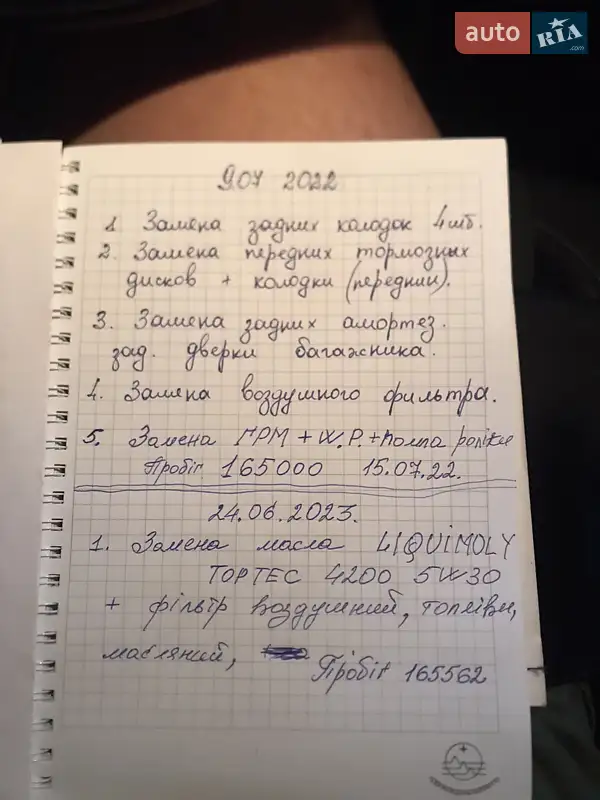 auto RIA .com
9.07 2022
1 Замена задних колодок 4шт.
2. Замена передних тормозных
дисков + колодки (передник).
3. Замена задних амортез.
зад. дверки багажника.
4. Замена воздушного фильтра.
5. Замена ГРМ + W.P. + помпа роліки
Пробіг 165000 15.07.22.
24.06.2023.
1. Замена масла LIQUIMOLY
TOPTEC 4200 5W30
+ фільтр воздушний, топлівн,
масляний,
Пробіг 165562